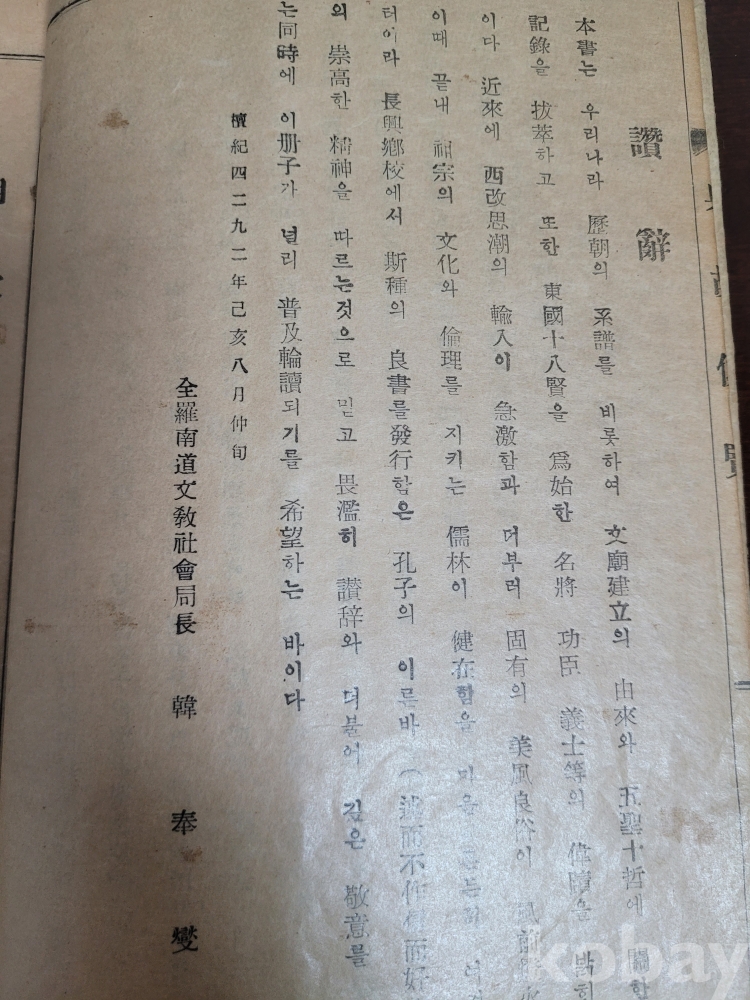 讚辭
本書는 우리나라 歷朝의 系譜를 비롯하여 文廟建立의 由來와 五聖十哲에 關한
記錄을 拔萃하고 또한 東國十八賢을 爲始한 名將 功臣 義士等의 偉蹟을 밝히
이다 近來에 西改思潮의 輸入이 急激함과 더부러 固有의 美風良俗이 風前
이때 끝내 祖宗의 文化와 倫理를 지키는 儒林이 健在함을 마음
터이라 長興鄕校에서 斯種의 良書를 發行함은 孔子의 이른바 (述而不作信而好
의 崇高한 精神을 따르는것으로 믿고 畏濫히 讚辞와 더불어 깊은 敬意를
는同時에 이册子가 널리 普及輪讀되기를 希望하는 바이다
檀紀四二九二年己亥八月仲旬
全羅南道文敎社會局長 韓奉燮
kobay